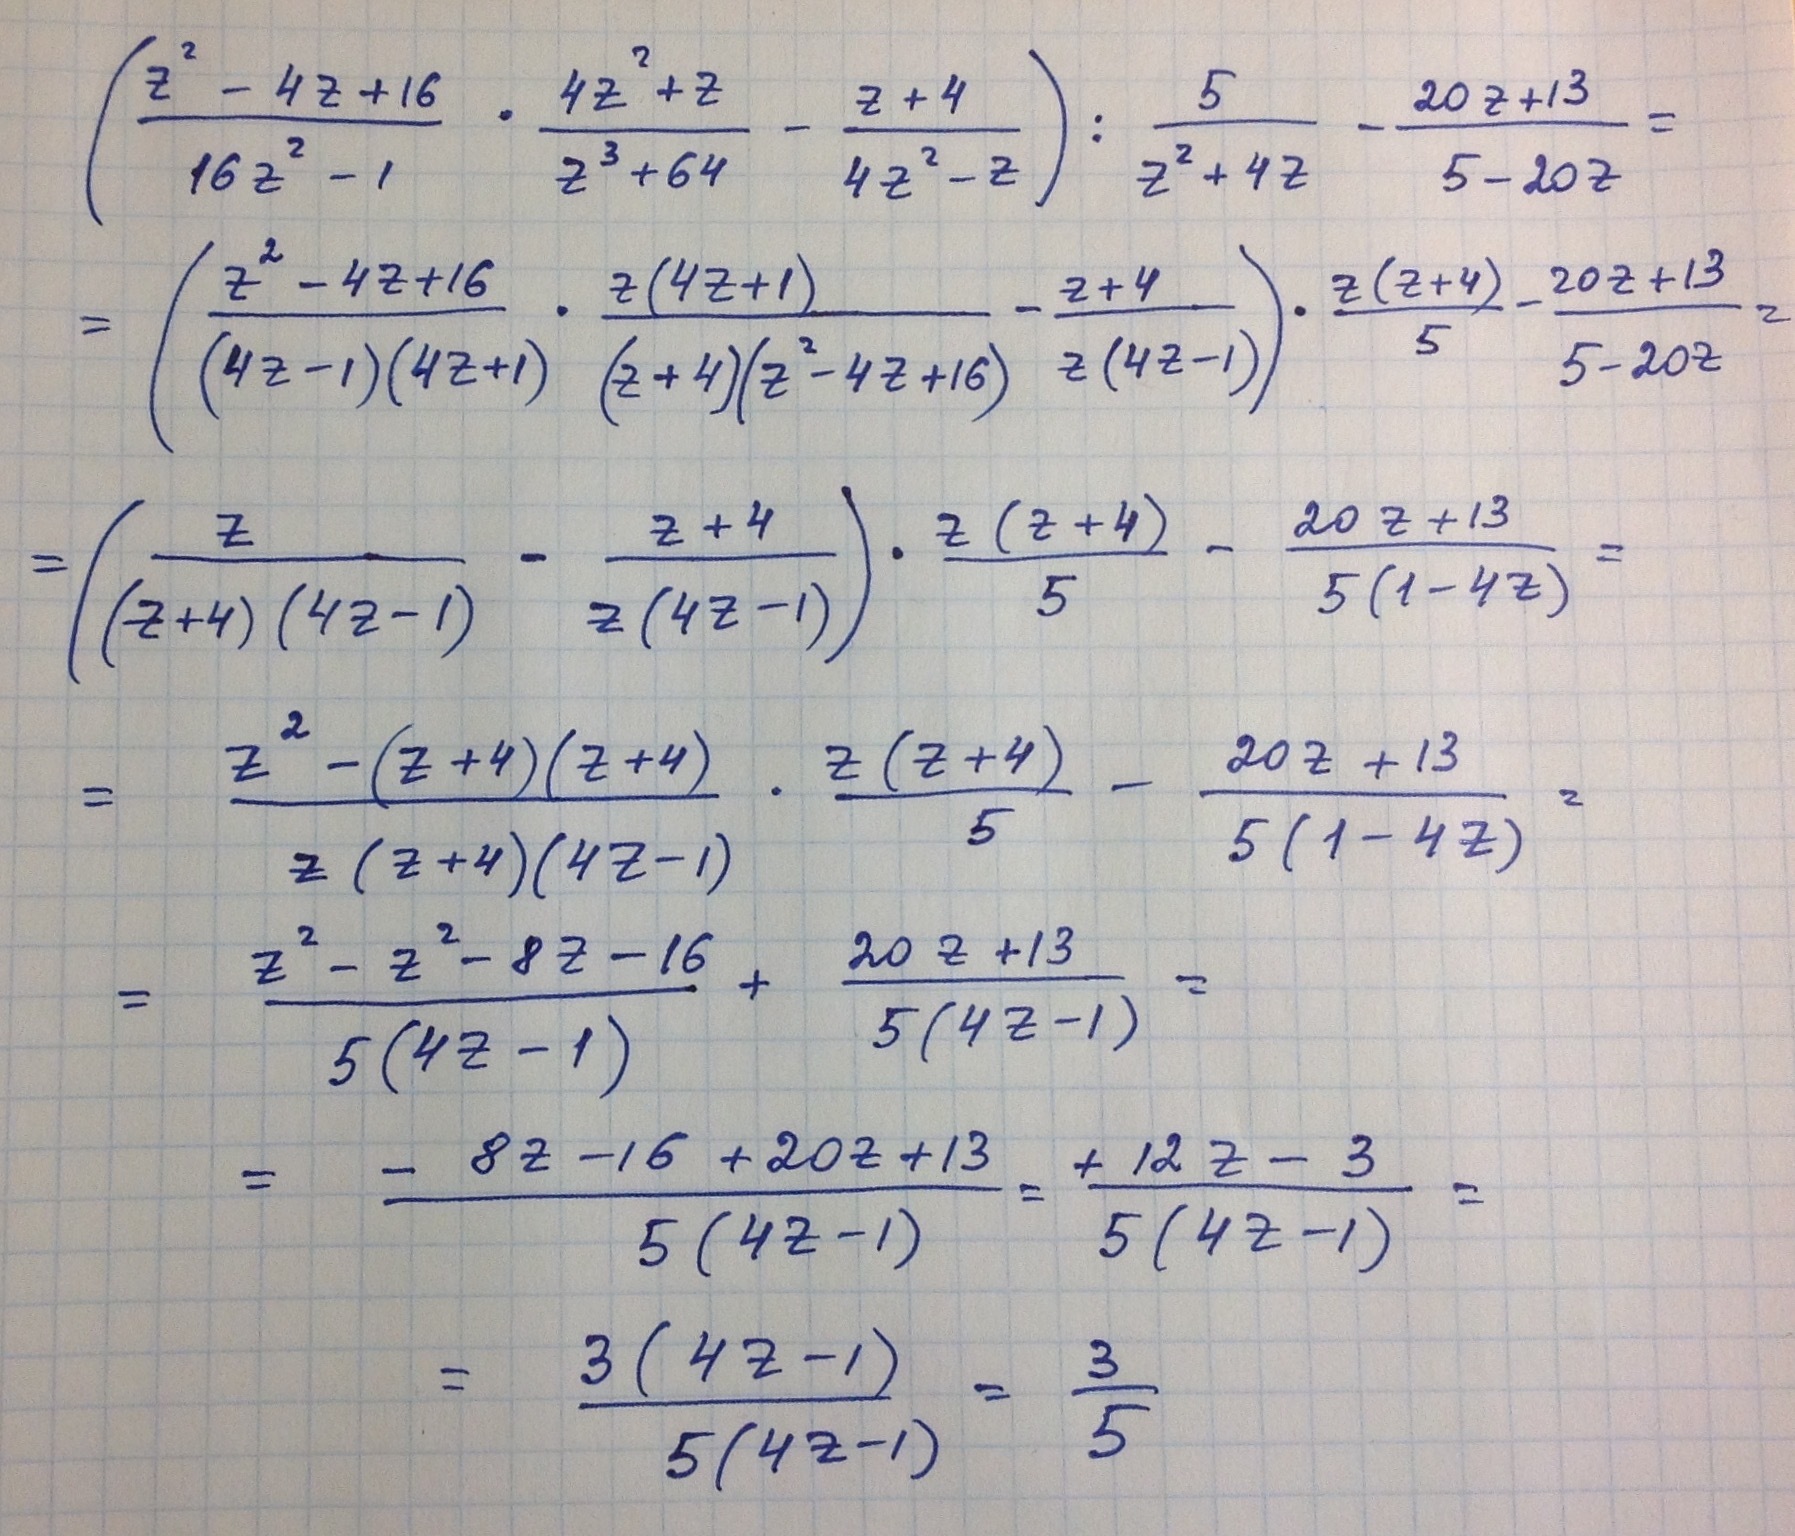 (z² - 4z + 16 / 16z² - 1 · 4z² + z / z³ + 64 - z + 4 / 4z² - z) : 5 / z² + 4z - 20z + 13 / 5 - 20z =
= (z² - 4z + 16 / (4z - 1)(4z + 1) · z(4z + 1) / (z + 4)(z² - 4z + 16) - z + 4 / z(4z - 1)) · z(z + 4) / 5 - 20z + 13 / 5 - 20z =
= (z / (z + 4)(4z - 1) - z + 4 / z(4z - 1)) · z(z + 4) / 5 - 20z + 13 / 5(1 - 4z) =
= z² - (z + 4)(z + 4) / z(z + 4)(4z - 1) · z(z + 4) / 5 - 20z + 13 / 5(1 - 4z) =
= z² - z² - 8z - 16 / 5(4z - 1) + 20z + 13 / 5(4z - 1) =
= - 8z - 16 + 20z + 13 / 5(4z - 1) = + 12z - 3 / 5(4z - 1) =
= 3(4z - 1) / 5(4z - 1) = 3 / 5